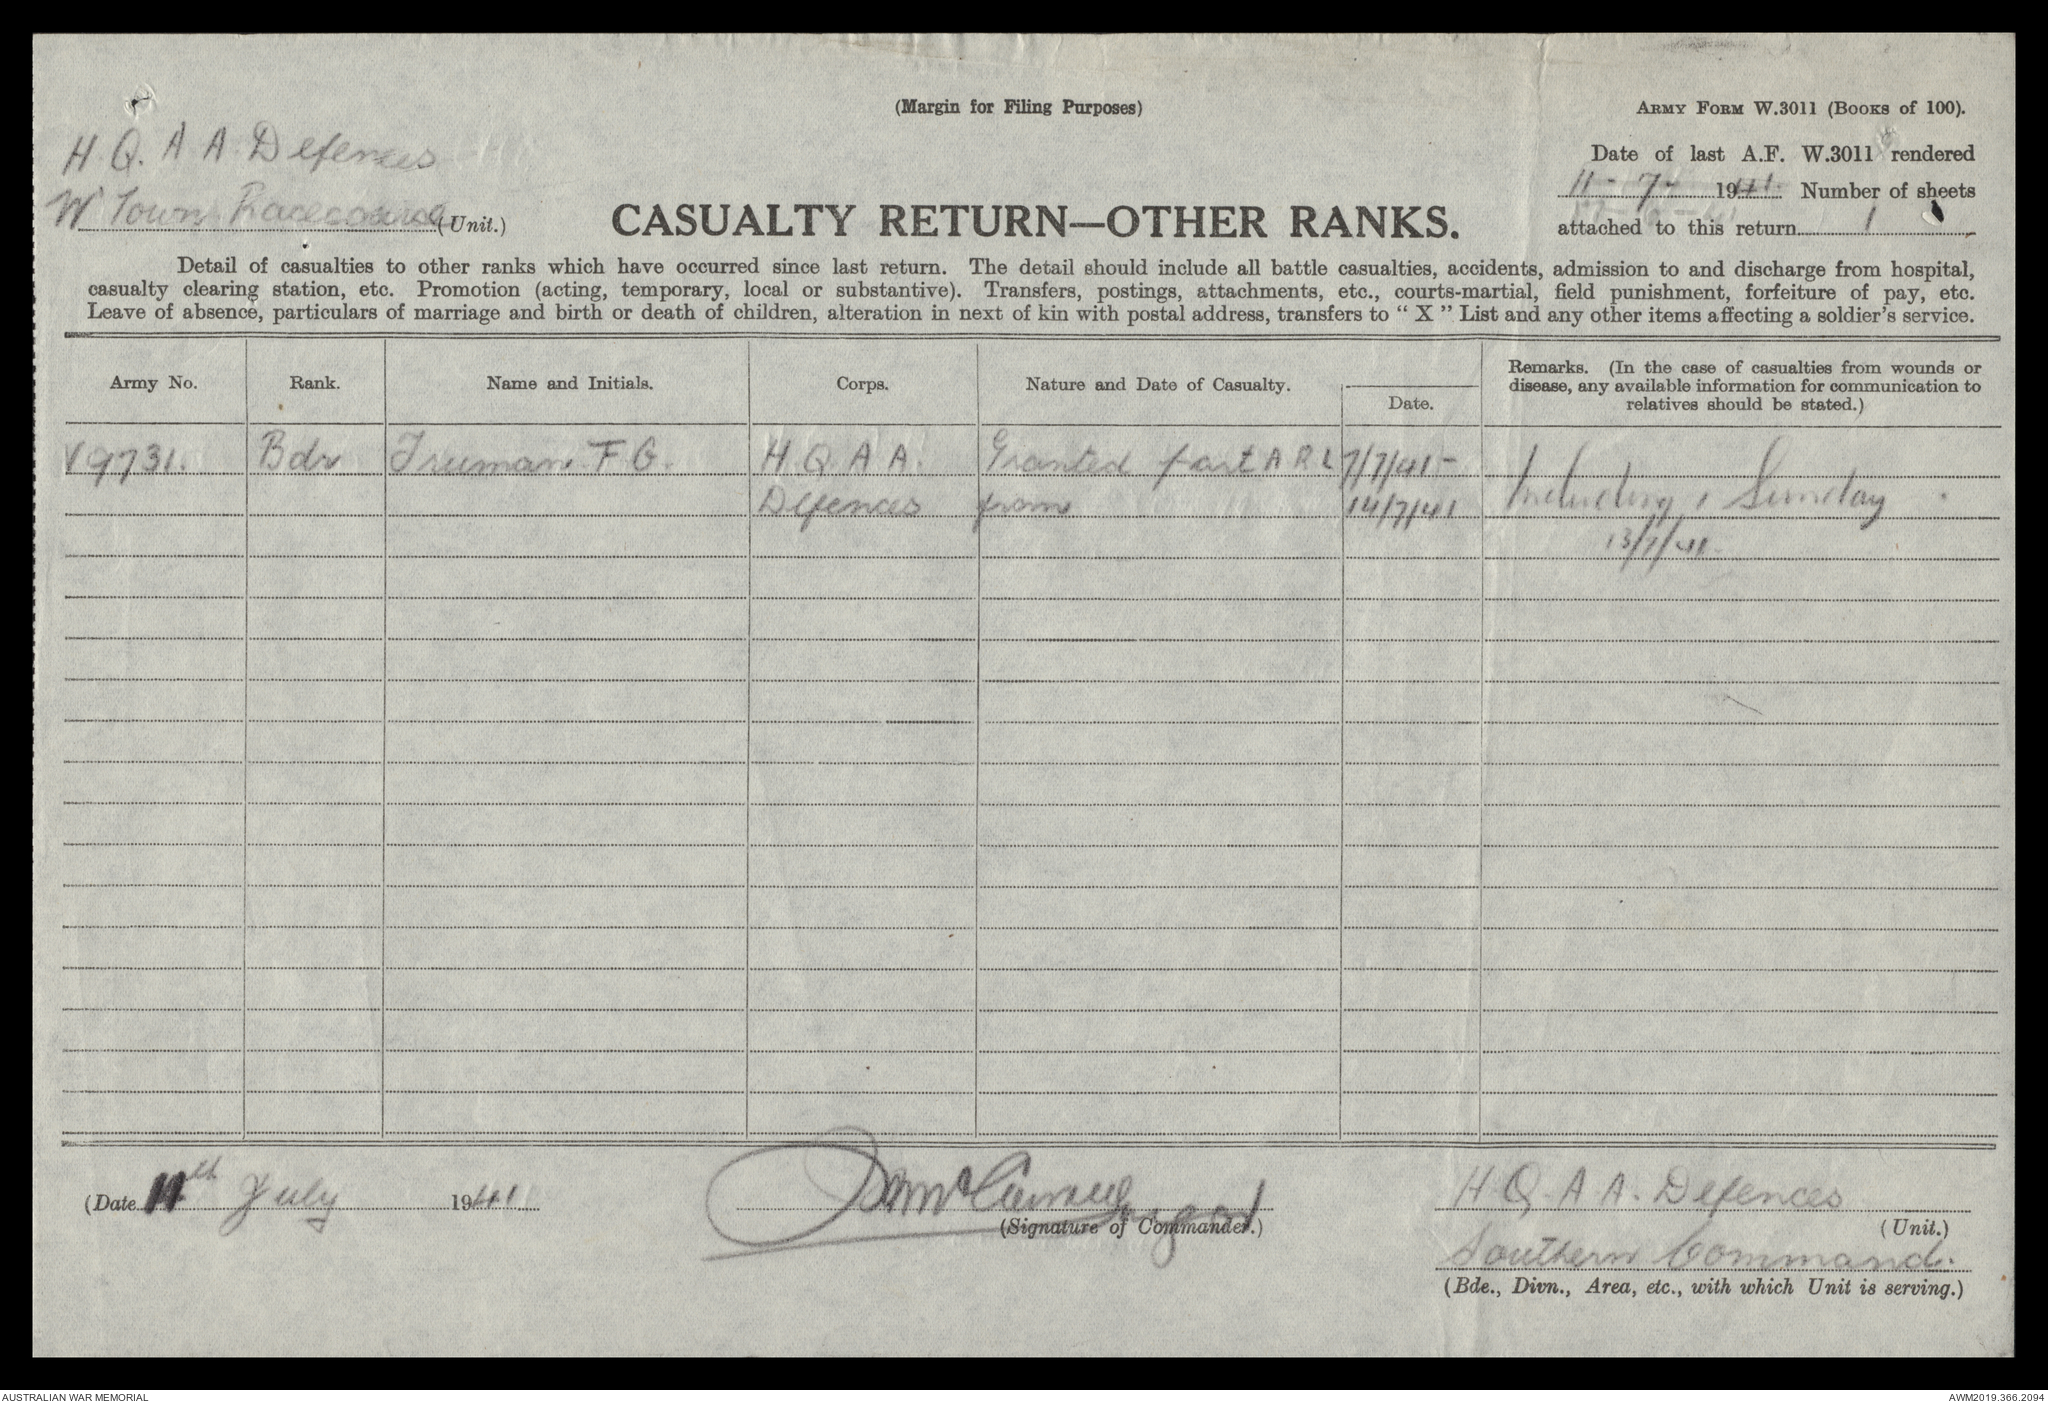 (Margin for Filing Purposes)
ARMY FORM W.3011 (BOOKS of 100).
H. Q. A A Defences
W' Town Racecourse (Unit.)
CASUALTY RETURN—OTHER RANKS.
Date of last A.F. W.3011 rendered
11 - 7 - 1941. Number of sheets
attached to this return 1
Detail of casualties to other ranks which have occurred since last return. The detail should include all battle casualties, accidents, admission to and discharge from hospital,
casualty clearing station, etc. Promotion (acting, temporary, local or substantive). Transfers, postings, attachments, etc., courts-martial, field punishment, forfeiture of pay, etc.
Leave of absence, particulars of marriage and birth or death of children, alteration in next of kin with postal address, transfers to “ X ” List and any other items affecting a soldier's service.
Army No. Rank. Name and Initials. Corps. Nature and Date of Casualty. Date.
Remarks. (In the case of casualties from wounds or
disease, any available information for communication to
relatives should be stated.)
V9731. Bdr Truman F G. H Q A A. Granted part A R L 7/7/41 -
Defences from 14/7/41 Including 1 Sunday
13/7/41.
(Date 11th July 1941
(Signature of Commander.)
H Q. A A. Defences
(Unit.)
Southern Command.
(Bde., Divn., Area, etc., with which Unit is serving.)
AUSTRALIAN WAR MEMORIAL
AWM2019.366.2094